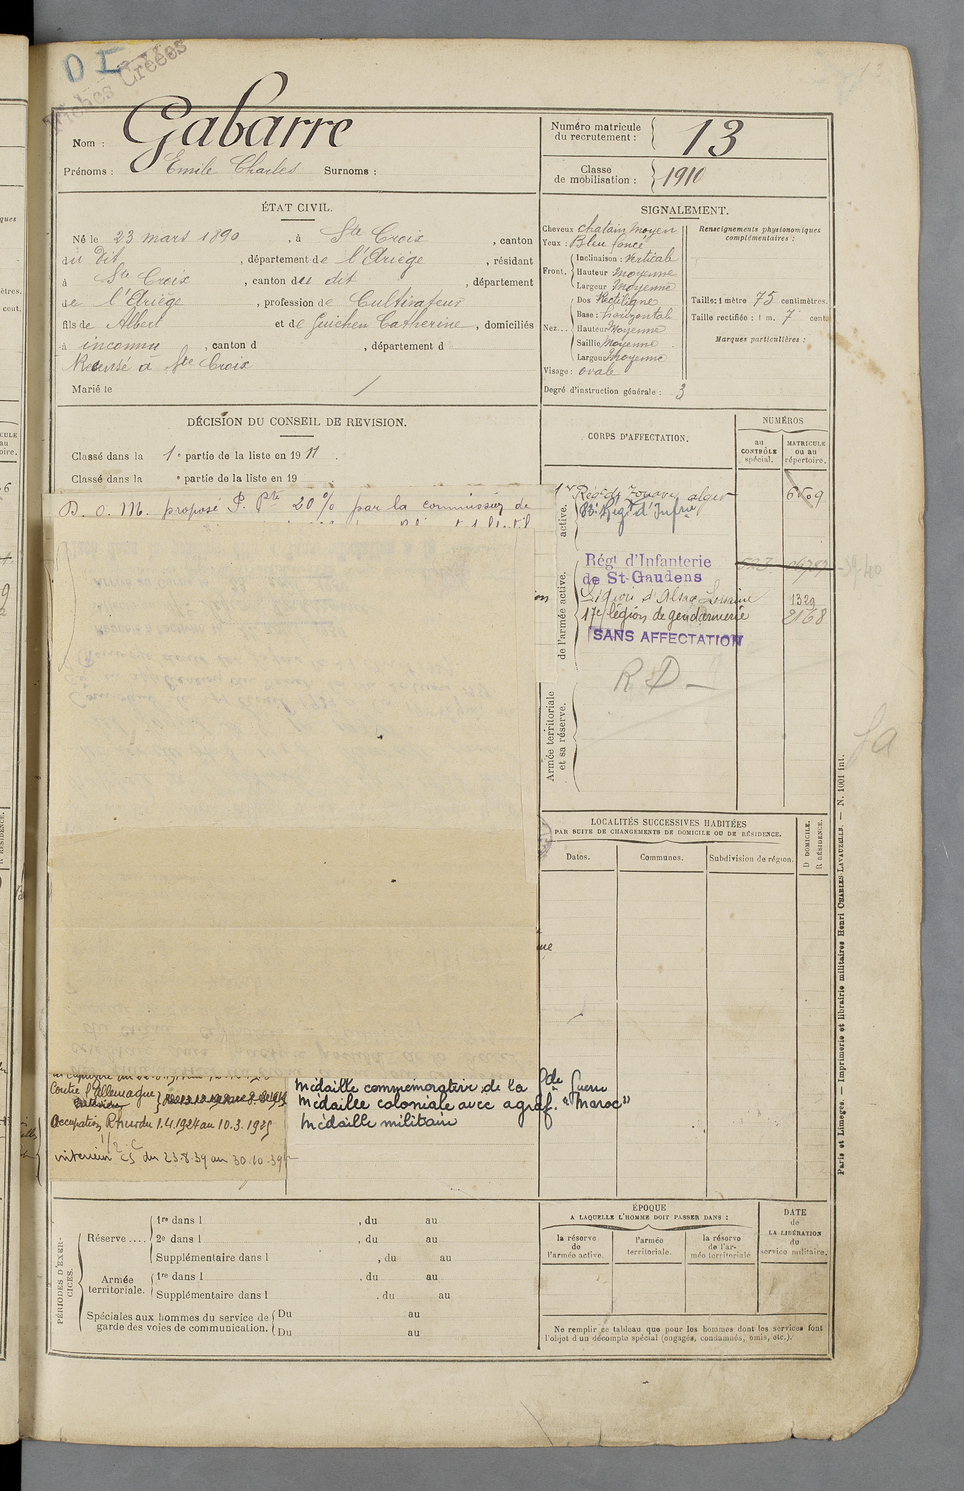 D I
Fiches Créées
Nom : Gabarre
Prénoms : Emile Charles Surnoms :
Numéro matricule du recrutement : 13
Classe de mobilisation : 1910
ÉTAT CIVIL.
Né le 23 mars 1890, à Ste Croix, canton
du dit, département de l'Ariège, résidant
à Ste Croix, canton du dit, département
de l'Ariège, profession de Cultivateur
fils de Albert et de Guichou Catherine, domiciliés
à inconnu, canton d , département d
Recensé à Ste Croix
Marié le /
SIGNALEMENT.
Cheveux chatain moyen
Yeux : Bleu foncé
Front. Inclinaison : Verticale
Hauteur moyenne
Largeur moyenne
Nez... Dos Rectiligne
Base : horizontale
Hauteur Moyenne
Saillie Moyenne
Largeur Moyenne
Visage : ovale
Degré d'instruction générale : 3
Renseignements physionomiques complémentaires :
Taille : 1 mètre 75 centimètres.
Taille rectifiée : 1 m. 7 cent.
Marques particulières :
DÉCISION DU CONSEIL DE REVISION.
Classé dans la 1e partie de la liste en 1911.
Classé dans la e partie de la liste en 19
B. o. M. proposé P. Pte 20% par la commission de
CORPS D'AFFECTATION.
NUMÉROS
au CONTRÔLE spécial.
MATRICULE ou au répertoire.
active.
1er Régt de Zouaves alger 6509
83e Régt d'Infrie
de l'armée active.
Régt d'Infanterie
de St-Gaudens
Légion d'Alsace Lorraine 1329
17e légion de gendarmerie 2168
SANS AFFECTATION
R D —
Armée territoriale et sa réserve.
LOCALITÉS SUCCESSIVES HABITÉES
PAR SUITE DE CHANGEMENTS DE DOMICILE OU DE RÉSIDENCE.
Dates.
Communes.
Subdivision de région.
D DOMICILE.
R RÉSIDENCE.
Contre l'Allemagne
Occupation Rhur du 1.4.1924 au 10.3.1925
1/2 C
intérieur CS du 23.8.39 au 30.10.39
Médaille commémorative de la Gde Guerre
Médaille coloniale avec agraf. "Maroc"
Médaille militaire
PÉRIODES D'EXERCICES.
Réserve.... 1re dans l , du au
2e dans l , du au
Supplémentaire dans l , du au
Armée territoriale. 1re dans l , du au
Supplémentaire dans l , du au
Spéciales aux hommes du service de garde des voies de communication. Du au
Du au
ÉPOQUE
A LAQUELLE L'HOMME DOIT PASSER DANS :
la réserve de l'armée active.
l'armée territoriale.
la réserve de l'armée territoriale
DATE de LA LIBÉRATION du service militaire.
Ne remplir ce tableau que pour les hommes dont les services font
l'objet d'un décompte spécial (engagés, condamnés, omis, etc.).
Paris et Limoges. — Imprimerie et librairie militaires Henri CHARLES-LAVAUZELLE. — N. 1001 int.